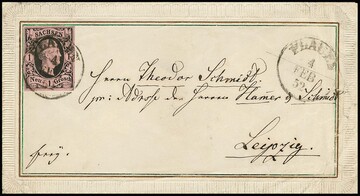 SACHSEN
PLAUEN
4
FEB
52
Herrn Theodor Schmidt
pr: Adresse des Herren Hamer & Schmidt
Leipzig.
frey.